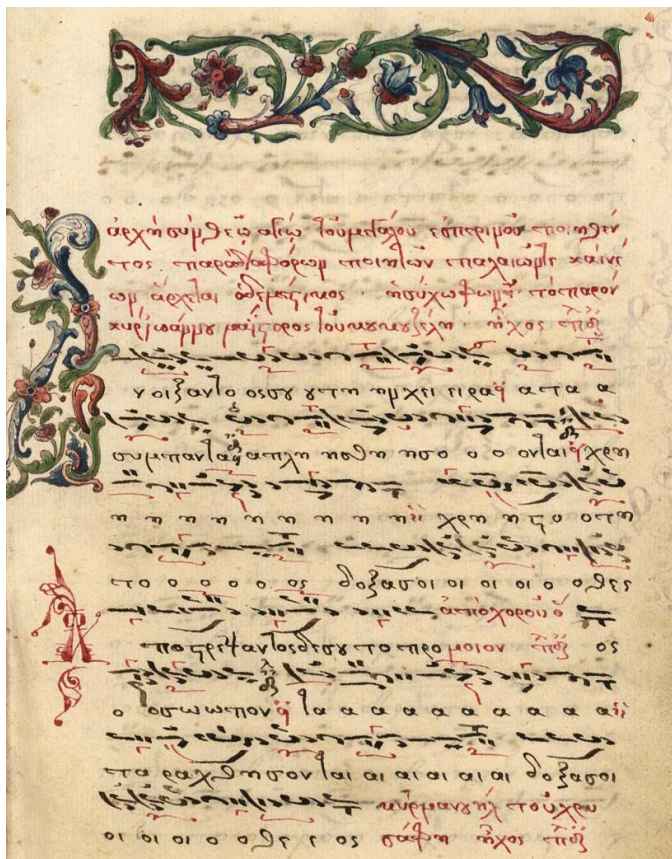 ἀρχὴ σὺν θεῷ ἁγίῳ τοῦ μεγάλου ἑσπερινοῦ ἐποιηθέν
τος παρὰ διαφόρων ποιητῶν παλαιῶν τε καὶ νέ
ων ἄρχεται ὁ δομέστικος · ἡσύχω φωνῇ · τὸ παρὸν
κυρίου ἰωάννου μαΐστορος τοῦ κουκουζέλη · ἦχος πλ δ
νοιξαντο ος σου ου τη ην χει ειρα α τα α
συμπαντα α πλη ησθη ησο ο ο ονται χρη
η η η η η η η η η χρη η ςο ο τη
το ο ο ο ο ος δοξασοι οι οι οι ο ο θε ες
ἀπὸ χοροῦ ὁ
Α ποςρεψαντος δε σου το προ μοιον πλ δ ος
ο οσωωπον τα α α α α α α α α
τα ραχθησονται αι αι αι αι αι αι δοξασοι
κὺρ μανουὴλ τοῦ χρυ
οι οι οι ο ο θε ε ε ος σάφη ἦχος πλ δ